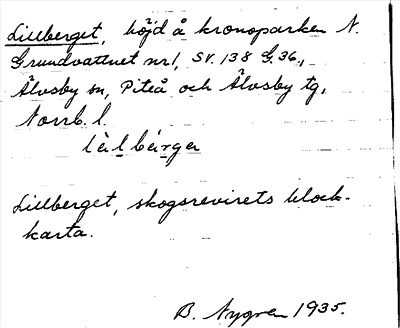 Lillberget, höjd å kronoparken N.
Grundvattnet nr1, SV. 138 G.36.,
Älvsby sn, Piteå och Älvsby tg,
Norrb. l.
lìlbǽrge
Lillberget, skogsrevirets block-
karta.
B. Nygren 1935.